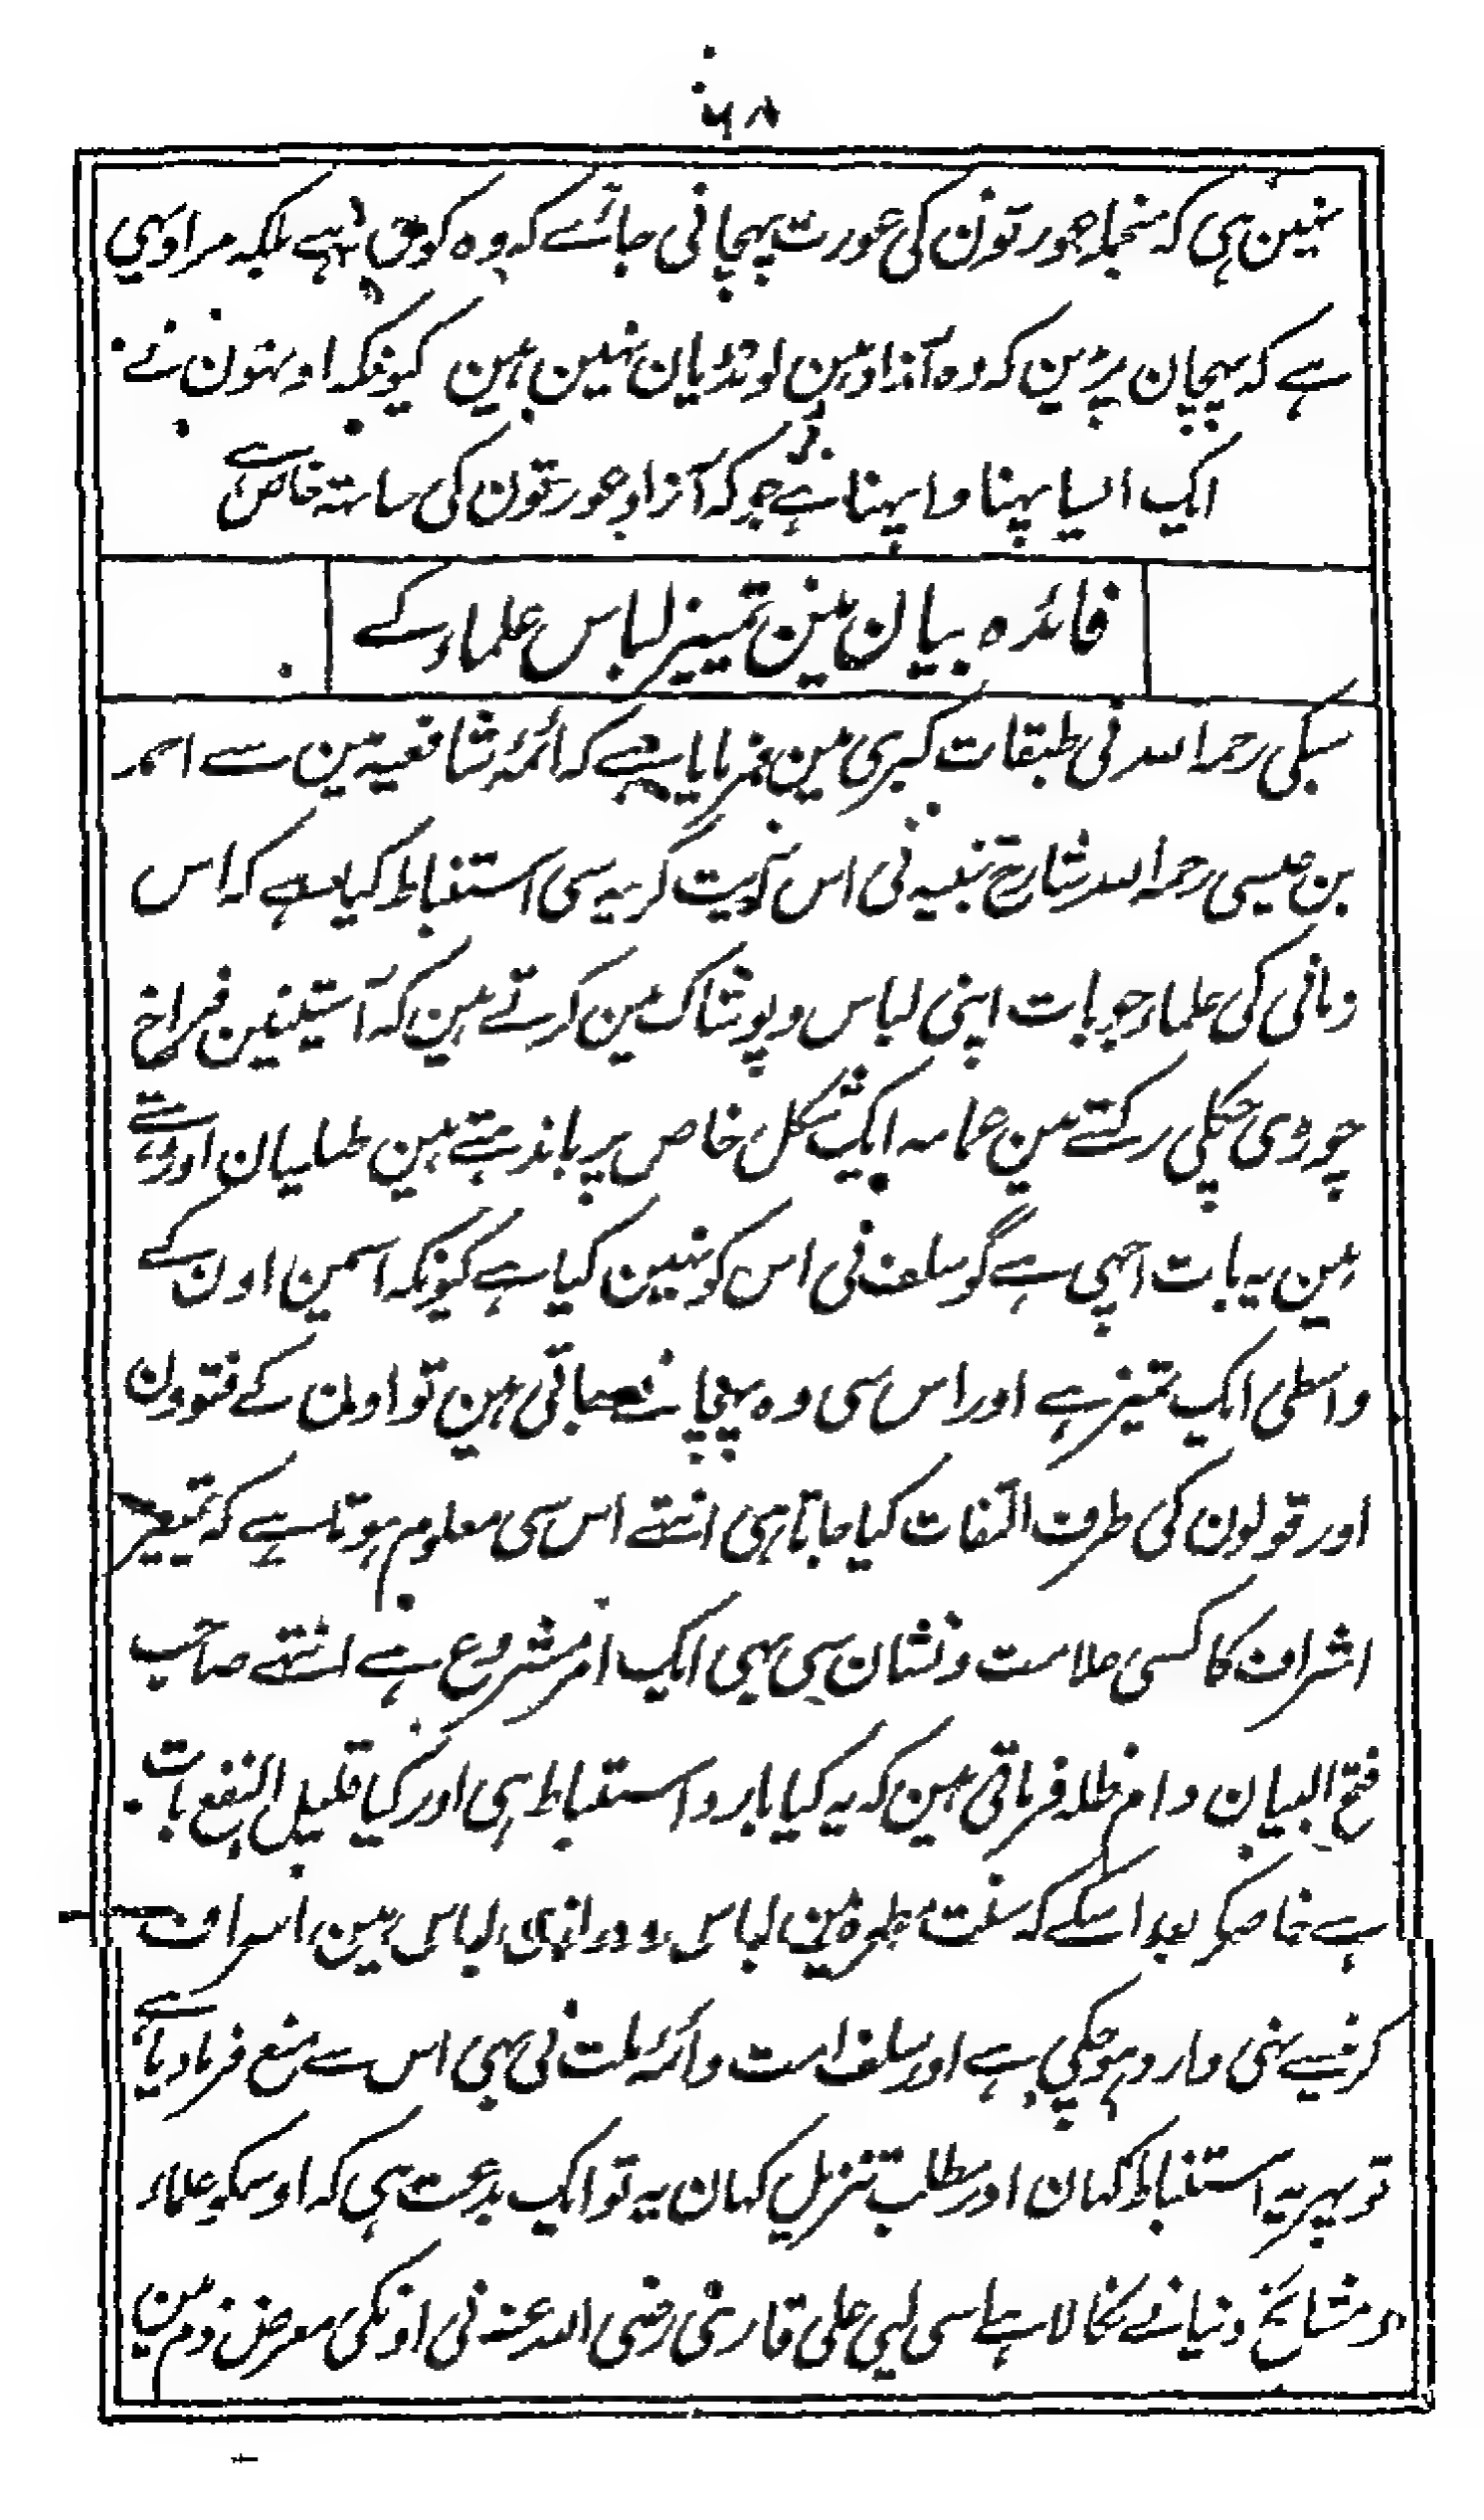 ۶۸
نہین ہی کہ منجملہ عورتون کی عورت پہچانی جائے کہ وہ کون ہے بلکہ مراد یہی
ہے کہ پہچان پڑین کہ وہ آزاد ہین لونڈیان نہین ہین کیونکہ اونہون نے
ایک ایسا پہناوا پہنا ہے جو کہ آزاد عورتون کی ساتہ خاص ہے
فائدہ بیان مین تمییز لباس علماء کے
سبکی رحمہ اللہ نی طبقات کبری مین فرمایا ہے کہ ائمۂ شافعیہ مین سے احمد
بن عیسی رحمہ اللہ شارح تنبیہ نی اس آیت کریمہ سی استنباط کیا ہے کہ اس
زمانی کی علماء جو بات اپنی لباس و پوشاک مین کرتے ہین کہ آستینین فراخ
چوڑی چکلی رکہتے ہین عمامہ ایک شکل خاص پر باندہتے ہین طیلسان اوڑہتے
ہین یہ بات اچہی ہے گو سلف نی اس کو نہین کیا ہے کیونکہ اسمین اون کے
واسطی ایک تمیز ہے اور اس سی وہ پہچانے جاتی ہین تو اون کے فتوون
اور قولون کی طرف التفات کیا جاتا ہی انتہے اس سی معلوم ہوتا ہے کہ تمییز
اشراف کا کسی علامت و نشان سی بہی ایک امر مشروع ہے انتہے صاحب
فتح البیان دام ظلہ فرماتی ہین کہ یہ کیا بارد استنباط ہی اور کیا قلیل النفع بات
ہے خاصکر بعد اسکے کہ سنت مطہرہ مین لباس و درازی لباس مین اسراف
کرنیسے نہی وارد ہوچکی ہے اور سلف امت و ائمہ ملت نی بہی اس سے منع فرمادیا ہے
تو پہر یہ استنباط کہان اور مطلب تنزیل کہان یہ تو ایک بدعت ہی کہ اوسکو علماء
و مشایخ دنیا نے نکالا ہے اسی لیی علی قاری رضی اللہ عنہ نی اونکی معرض ذم مین